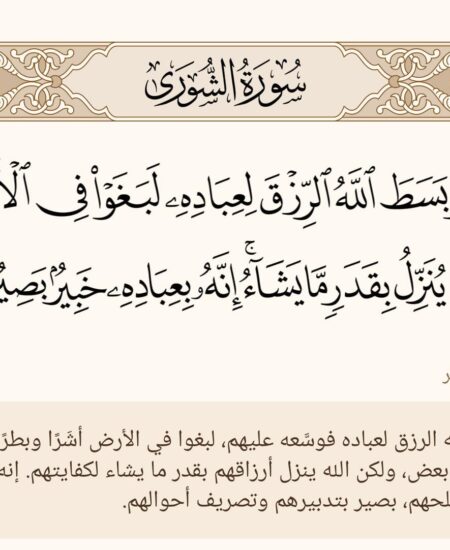 سُورَةُ الشُّورَىٰ
بَسَطَ ٱللَّهُ ٱلرِّزۡقَ لِعِبَادِهِۦ لَبَغَوۡاْ فِي
يُنَزِّلُ بِقَدَرٖ مَّا يَشَآءُۚ إِنَّهُۥ بِعِبَادِهِۦ خَبِيرُۢ بَصِيرٞ
الرزق لعباده فوسَّعه عليهم، لبغوا في الأرض أشَرًا وبطرً
بعض، ولكن الله ينزل أرزاقهم بقدر ما يشاء لكفايتهم. إنه
لحهم، بصير بتدبيرهم وتصريف أحوالهم.